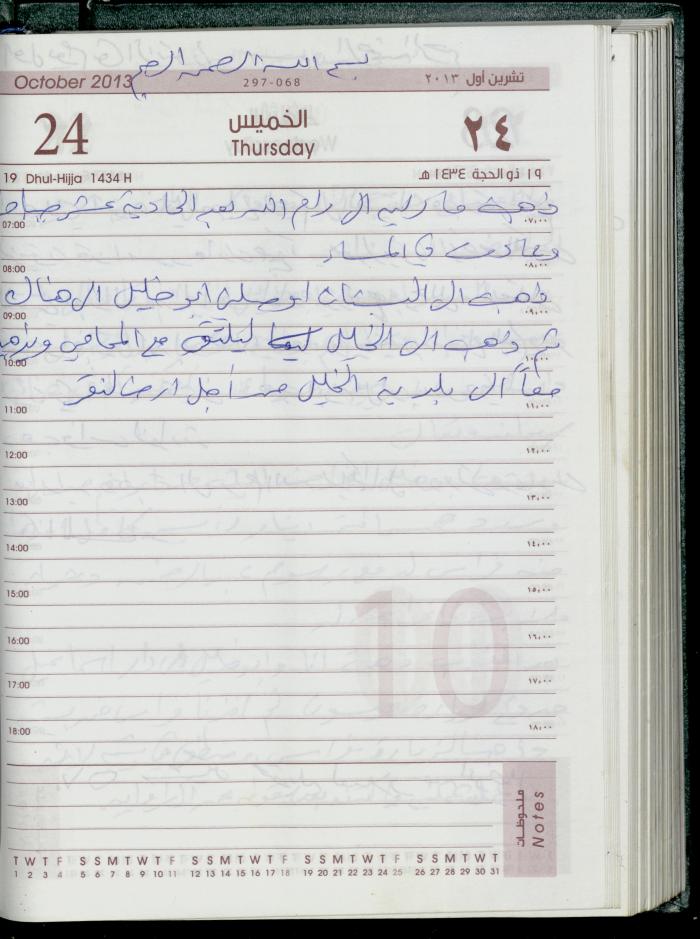 بسم الله الرحمن الرحيم
October 2013 297-068 تشرين أول ٢٠١٣
24 الخميس ٢٤
Thursday
19 Dhul-Hijja 1434 H ١٩ ذو الحجة ١٤٣٤ هـ
ذهبت ماريا الى رام الله الحادية عشر صباحا
07:00 ٠٧,٠٠
وعادت في المساء
08:00 ٠٨,٠٠
ذهبت الى البستان اوصلني ابو خليل الى هناك
09:00 ٠٩,٠٠
ثم ذهب الى الخليل ليلتقي مع المحامي
10:00 ١٠,٠٠
معاً الى بلدية الخليل من أجل ارض
11:00 ١١,٠٠
12:00 ١٢,٠٠
13:00 ١٣,٠٠
14:00 ١٤,٠٠
15:00 ١٥,٠٠
10
16:00 ١٦,٠٠
17:00 ١٧,٠٠
18:00 ١٨,٠٠
ملحوظات
Notes
T W T F S S M T W T F S S M T W T F S S M T W T F S S M T W T
1 2 3 4 5 6 7 8 9 10 11 12 13 14 15 16 17 18 19 20 21 22 23 24 25 26 27 28 29 30 31